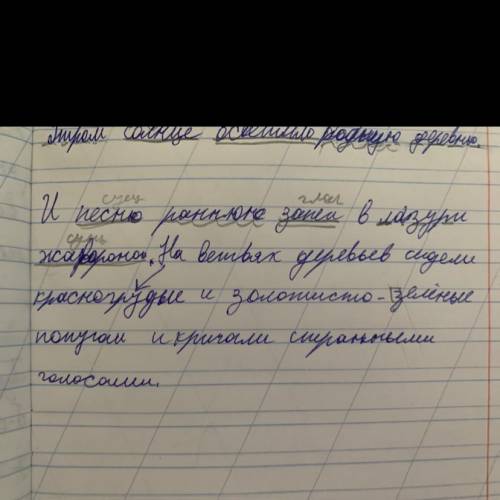 Утром солнце осветило родную деревню.
сущ глаг
И песню раннюю запел в лазури
сущ
жаворонок. На ветвях деревьев сидели
красногрудые и золотисто-зелёные
попугаи и кричали странными
голосами.